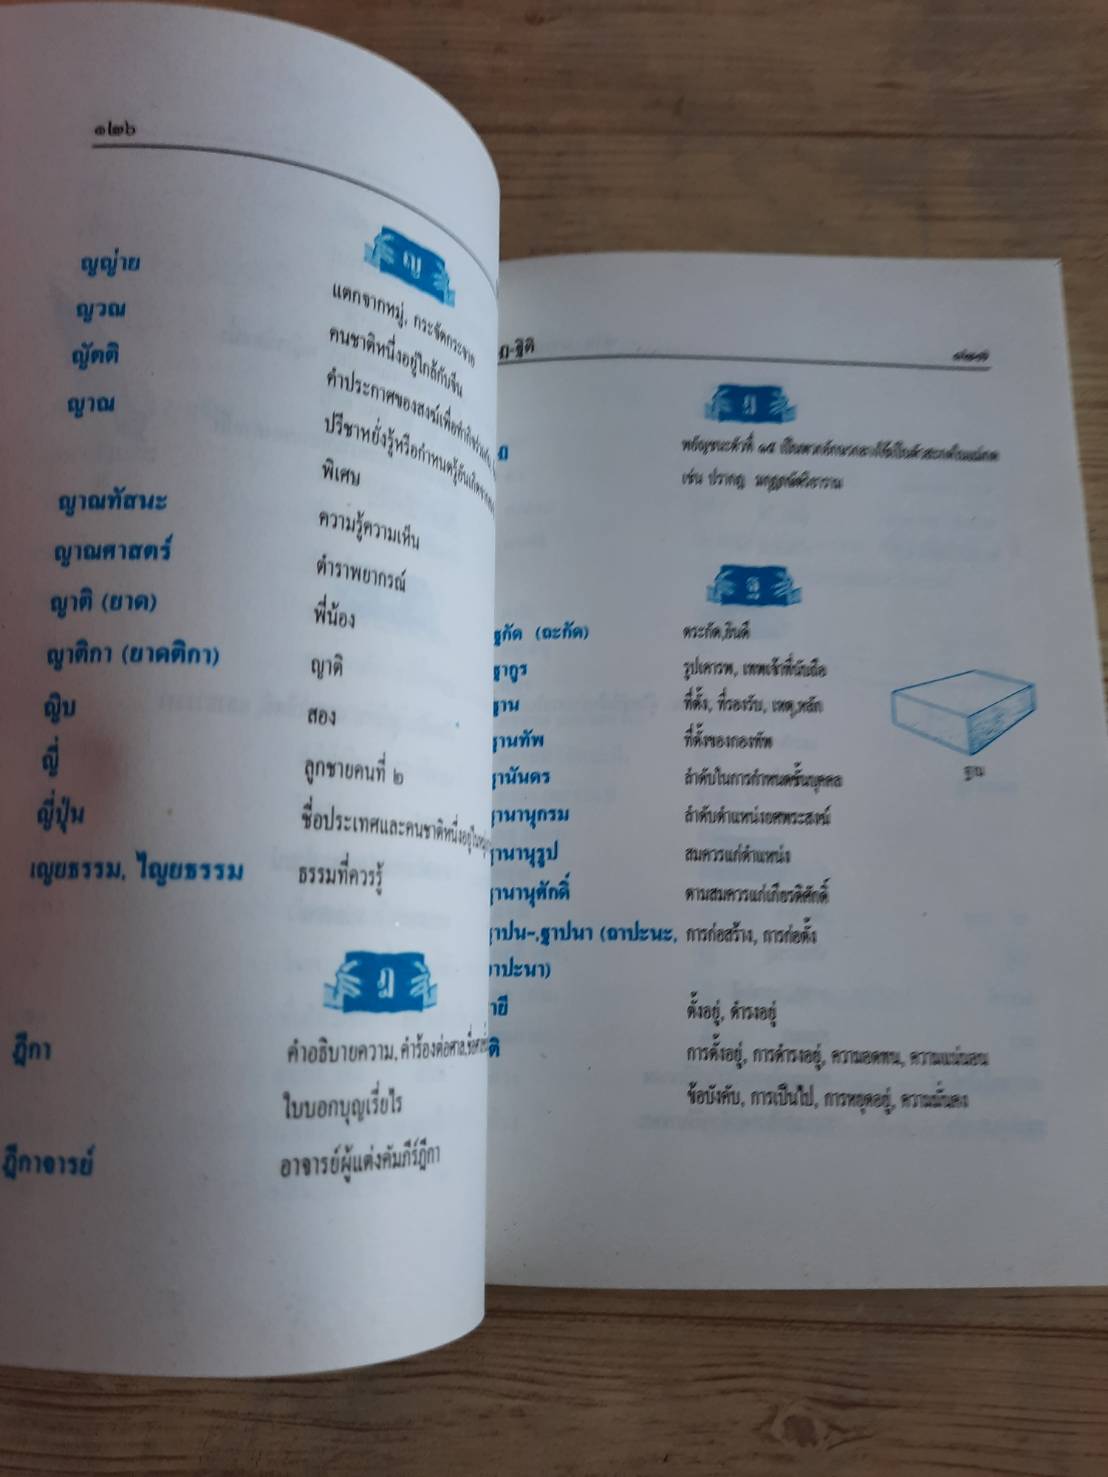 ๑๒๖
ญ
ญญ่าย แตกจากหมู่, กระจัดกระจาย
ญวณ คนชาติหนึ่งอยู่ใกล้กับจีน
ญัตติ คำประกาศของสงฆ์เพื่อทำกิจ
ญาณ ปรีชาหยั่งรู้หรือกำหนดรู้อันเกิดจาก
พิเศษ
ญาณทัสนะ ความรู้ความเห็น
ญาณศาสตร์ ตำราพยากรณ์
ญาติ (ยาด) พี่น้อง
ญาติกา (ยาดติกา) ญาติ
ญิบ สอง
ญี่ ลูกชายคนที่ ๒
ญี่ปุ่น ชื่อประเทศและคนชาติหนึ่งอยู่ใน
เญยธรรม, ไญยธรรม ธรรมที่ควรรู้
ฎ
ฎีกา คำอธิบายความ, คำร้องต่อศาล,
ใบบอกบุญเรี่ยไร
ฎีกาจารย์ อาจารย์ผู้แต่งคัมภีร์ฎีกา
ฏ-ฐิติ ๑๒๗
ฏ
ฏ พยัญชนะตัวที่ ๑๕ เป็นพวกอักษรกลางใช้เป็นตัวสะกดในแม่กด
เช่น ปรากฏ มกุฏกษัตริยาราม
ฐ
ฐกัด (ถะกัด) ตระกัด,ยินดี
ฐากูร รูปเคารพ, เทพเจ้าที่นับถือ
ฐาน ที่ตั้ง, ที่รองรับ, เหตุ,หลัก
ฐานทัพ ที่ตั้งของกองทัพ
ฐาน
ฐานันดร ลำดับในการกำหนดชั้นบุคคล
ฐานานุกรม ลำดับตำแหน่งยศพระสงฆ์
ฐานานุรูป สมควรแก่ตำแหน่ง
ฐานานุศักดิ์ ตามสมควรแก่เกียรติศักดิ์
ฐาปน-,ฐาปนา (ถาปะนะ, การก่อสร้าง, การก่อตั้ง
าปะนา)
ายี ตั้งอยู่, ดำรงอยู่
ติ การตั้งอยู่, การดำรงอยู่, ความอดทน, ความแน่นอน
ข้อบังคับ, การเป็นไป, การหยุดอยู่, ความมั่นคง